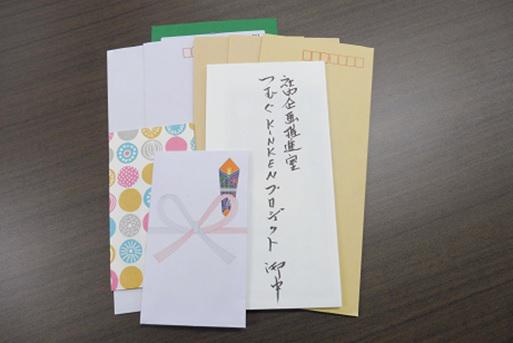 広報企画推進室
つむぐKINKENプロジェクト 御中